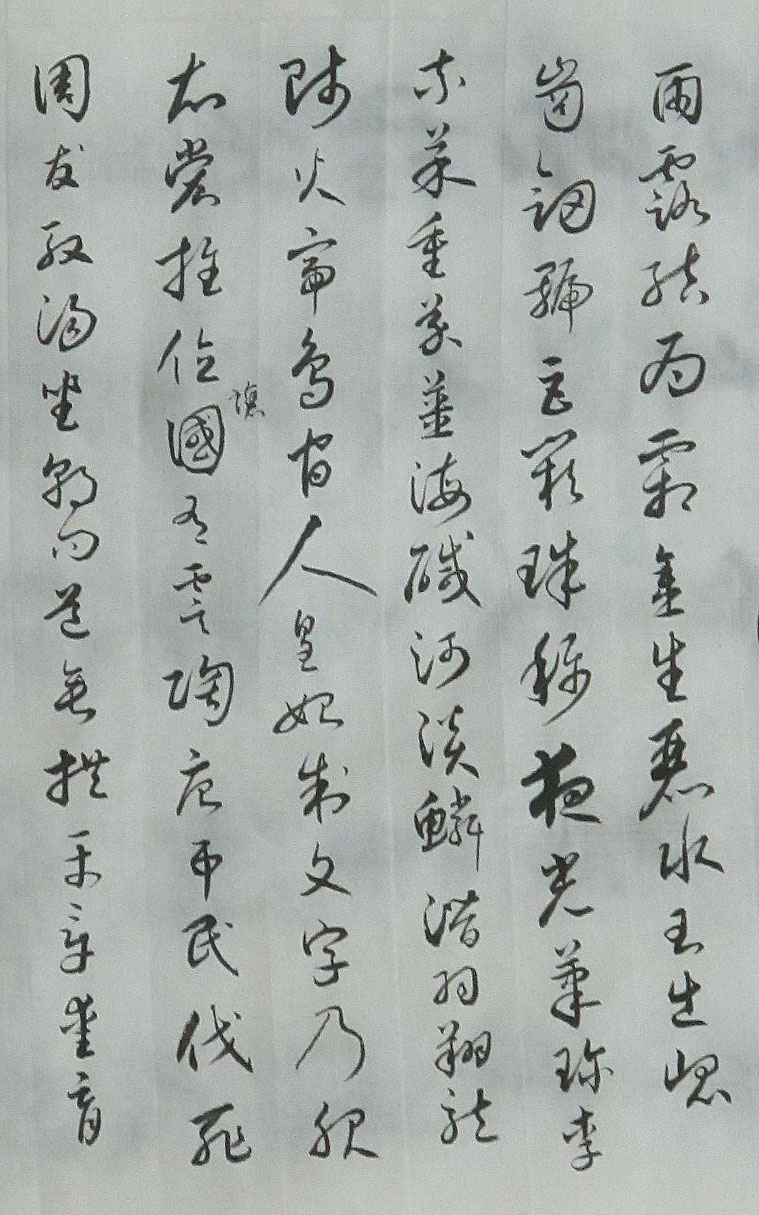 雨露結為霜金生麗水玉出崑
崗劍號巨闕珠稱夜光菓珍李
柰菜重芥薑海醎河淡鱗潛羽翔龍
師火帝鳥官人皇始制文字乃服
衣裳推位國有虞陶唐弔民伐罪
讓
周發殷湯坐朝問道垂拱平章愛育